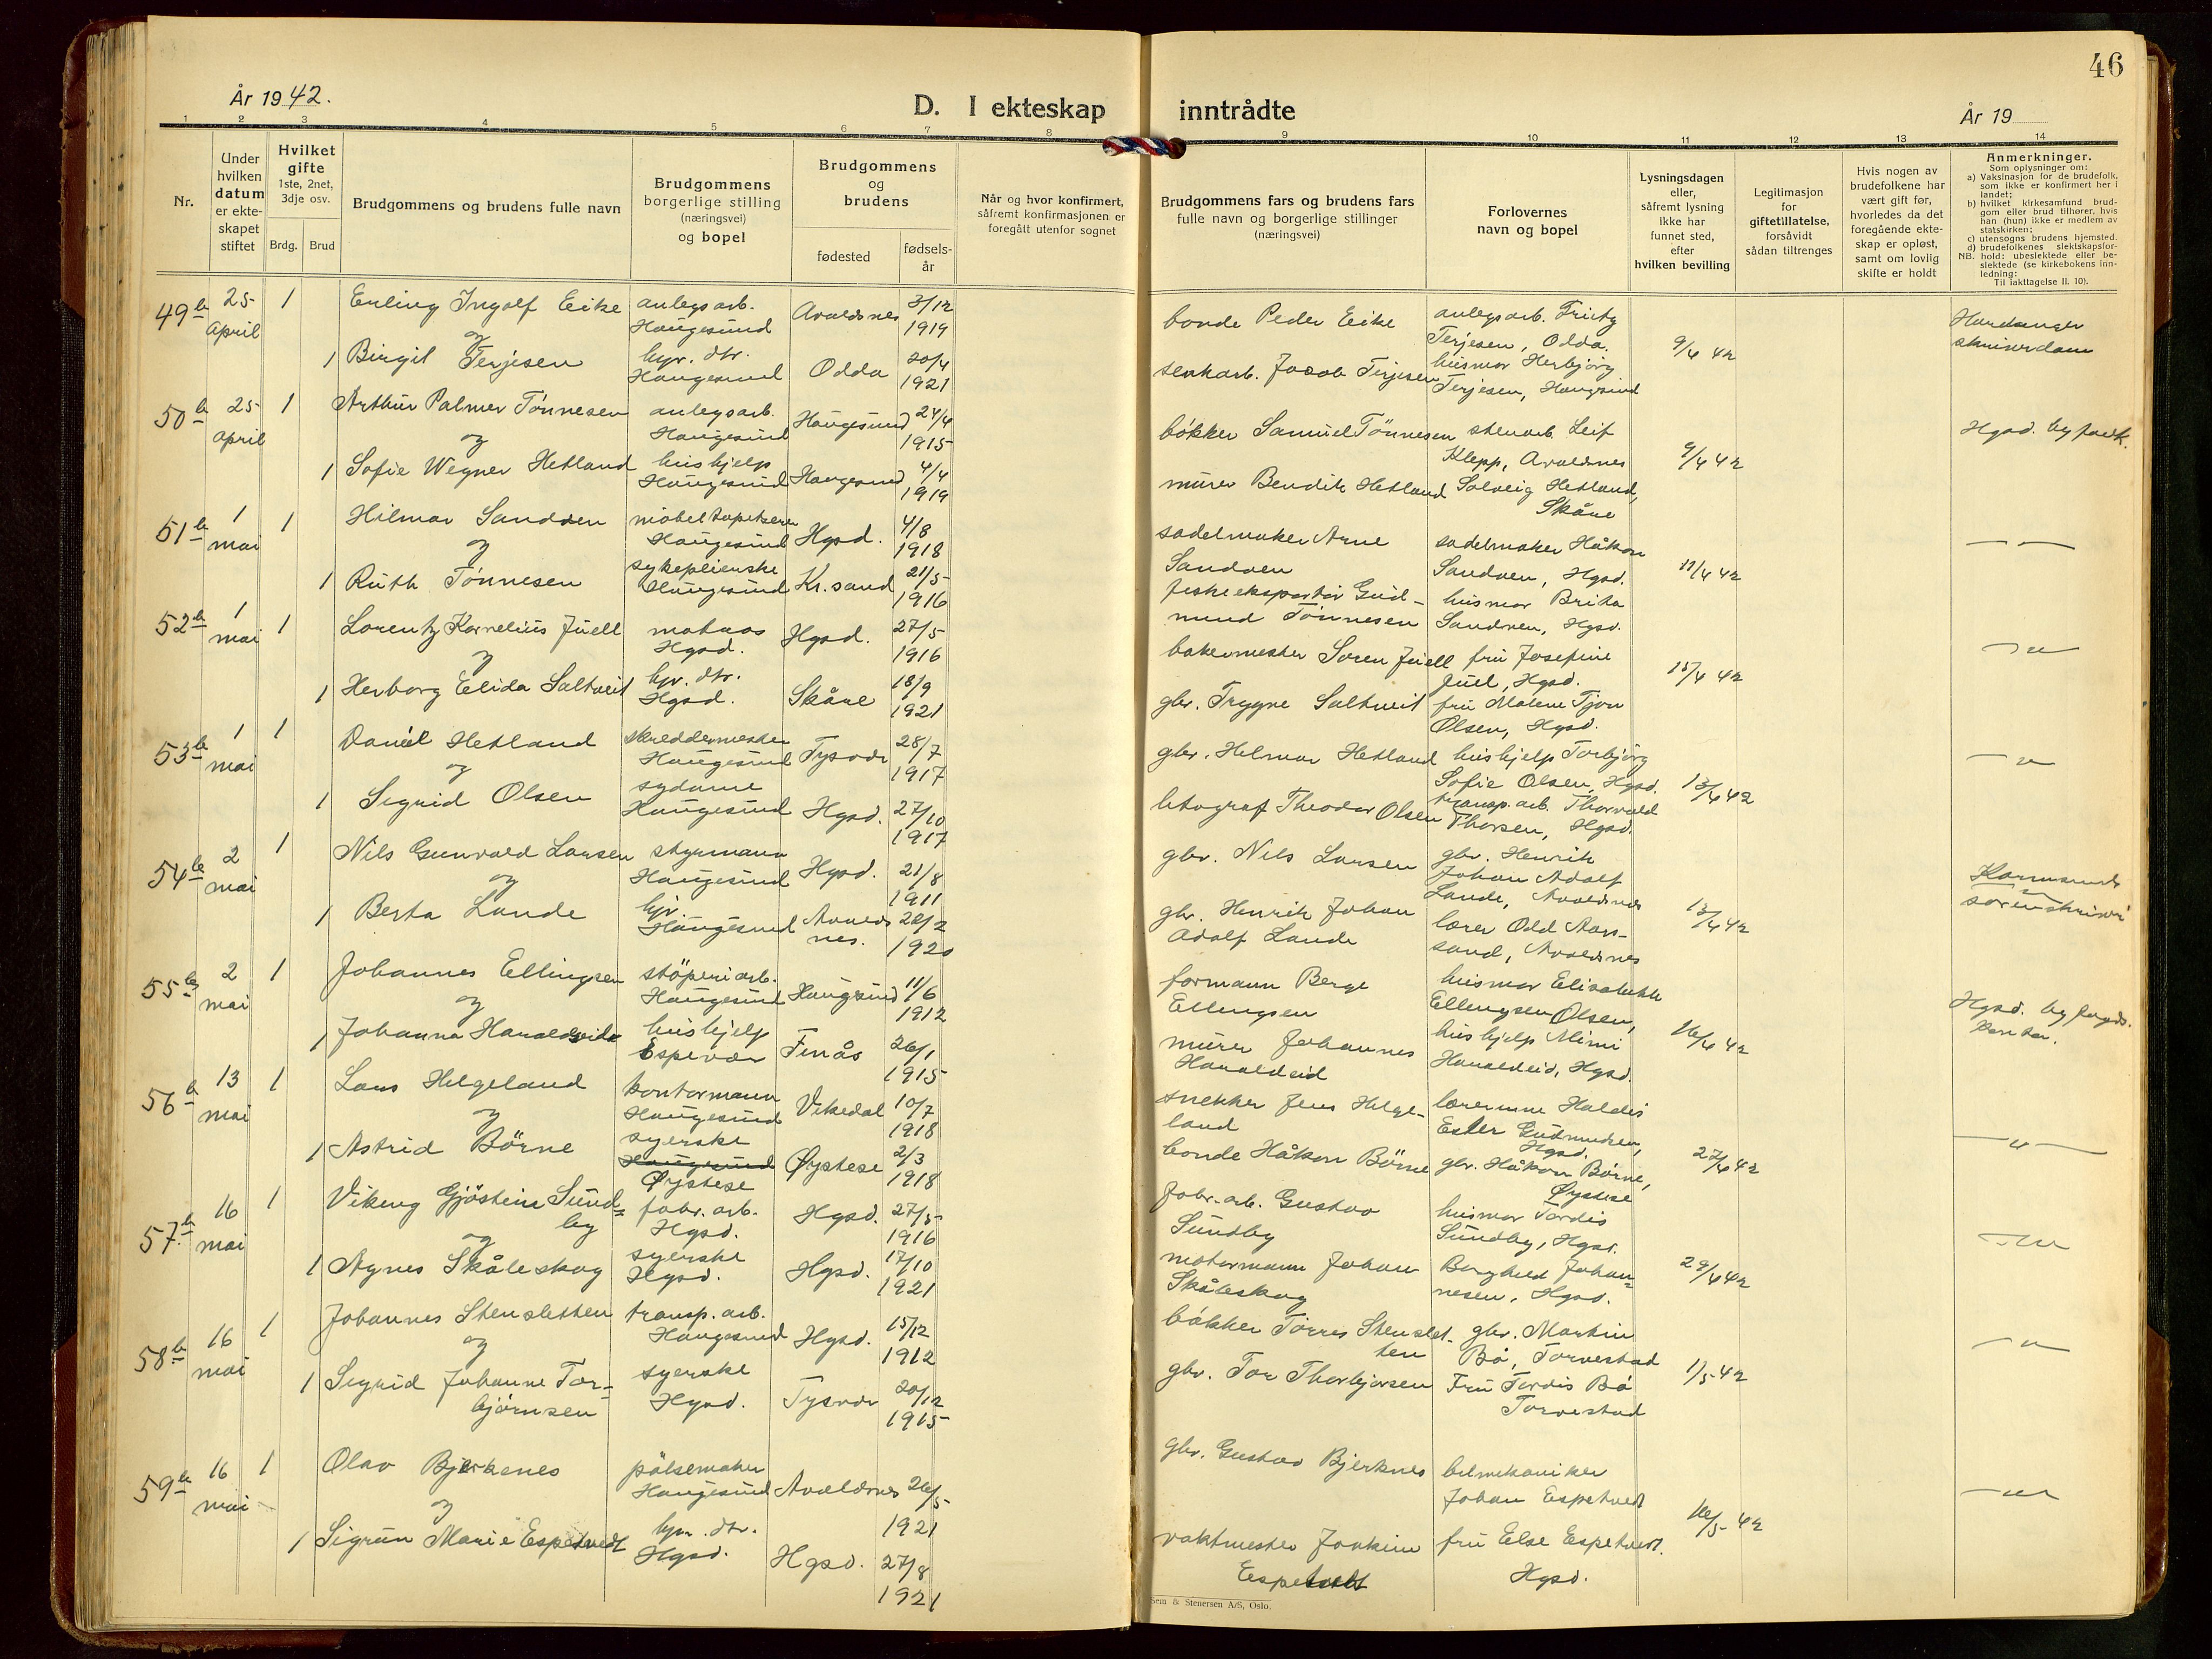 46
År 1942.
D. I ekteskap inntrådte
År 19
1 2 3 4 5 6 7 8 9 10 11 12 13 14
Nr.
Under hvilken datum er ekte-skapet stiftet
Hvilket gifte
1ste, 2net, 3dje osv.
Brdg. Brud
Brudgommens og brudens fulle navn
Brudgommens borgerlige stilling (næringsvei) og bopel
Brudgommens og brudens
fødested
fødsels-år
Når og hvor konfirmert, såfremt konfirmasjonen er foregått utenfor sognet
Brudgommens fars og brudens fars fulle navn og borgerlige stillinger (næringsvei)
Forlovernes navn og bopel
Lysningsdagen eller, såfremt lysning ikke har funnet sted, efter hvilken bevilling
Legitimasjon for giftetillatelse, forsåvidt sådan tiltrenges
Hvis nogen av brudefolkene har vært gift før, hvorledes da det foregående ekte-skap er opløst, samt om lovlig skifte er holdt
Anmerkninger.
Som oplysninger om:
a) Vaksinasjon for de brudefolk, som ikke er konfirmert her i landet;
b) hvilket kirkesamfund brud-gom eller brud tilhører, hvis han (hun) ikke er medlem av statskirken;
c) utensogns brudens hjemsted.
d) brudefolkenes slektskapsfor-hold: ubeslektede eller be-slektede (se kirkebokens inn-ledning:
NB.
Til iakttagelse II. 10).
49 b 25 April 1 Erling Ingolf Eike anlegsarb. Haugesund Avaldsnes 3/12 1919
og
1 Birgit Terjesen hjv. dtr. Haugesund Odda 20/4 1921
bonde Peder Eike
anlegsarb. Fritz Terjesen, Odda.
Jacob Terjesen
husmor Herbjörg Terjesen, Haugesund
9/4 42
Hardanger
50 b 25 April 1 Arthur Palmer Tönnesen anlegsarb. Haugesund Haugesund 24/4 1915
og
1 Sofie Wegner Hetland hushjelp Haugesund Haugesund 4/4 1919
bökker Samuel Tönnesen
stenarb. Leif Klepp, Avaldsnes
murer Bendik Hetland
Solveig Hetland, Skåne
9/4 42
51 b 1 mai 1 Hilmar Sandven möbeltapetserer Haugesund Hgsd. 4/8 1918
og
1 Ruth Tönnesen sykepleierske Haugesund Kr.sand 21/5 1916
sadelmaker Arne Sandven
sadelmaker Håkon Sandven, Hgsd.
fiskeeksportör Gud-mund Tönnesen
husmor Brita Sandven, Hgsd.
11/4 42
— —
52 b 1 mai 1 Lorentz Kornelius Juell Hgsd. Hgsd. 27/5 1916
og
1 Herborg Elida Saltveit hjv. dtr. Hgsd. Skåne 18/9 1921
bakermester Sören Juell
fru Josefine Juell, Hgsd.
gbr. Trygve Saltveit
fru Malene Tjon Olsen, Hgsd.
15/4 42
— " —
53 b 1 mai 1 Daniel Hetland skreddermester Haugesund Tysvær 28/7 1917
og
1 Sigrid Olsen sydame Haugesund Hgsd. 27/10 1917
gbr. Helmar Hetland
hushjelp Torbjörg Sofie Olsen, Hgsd.
litograf Theodor Olsen
transp.arb. Thorvald Thorsen, Hgsd.
13/4 42
— " —
54 b 2 mai 1 Nils Gunvald Larsen styrmann Haugesund Hgsd. 21/8 1911
og
1 Berta Lande hjv. Haugesund Avaldsnes. 1920
gbr. Nils Larsen
gbr. Henrik Johan Adolf Lande, Avaldsnes
gbr. Henrik Johan Adolf Lande
lærer Odd Aarsand, Avaldsnes
13/4 42
Karmsunds
55 b 2 mai 1 Johannes Ellingsen stöperiarb. Haugesund Haugesund 11/6 1912
og
1 Johanna Haraldseide hushjelp Espevær Finås 26/1 1915
formann Berge Ellingsen
husmor Elisabeth Ellingsen Olsen,
murer Johannes Haraldseid
hushjelp Mimi Haraldseid, Hgsd.
16/4 42
56 b 13 mai 1 Lars Helgeland kontormann Haugesund Vikedal 10/7 1918
og
1 Astrid Börne syerske Haugesund Øystese Øystese 2/3 1918
snekker Jens Helge-land
lærerinne Haldis Ester Gudmundsen, Hgsd.
bonde Håkon Börne
gbr. Håkon Börne, Øystese
27/4 42
— " —
57 b 16 mai 1 Viking Gjöstein Sund-by fabr. arb. Hgsd. Hgsd. 27/5 1916
og
1 Agnes Skåleskog syerske Hgsd. Hgsd. 17/10 1921
fabr. arb. Gustav Sundby
husmor Tordis Sundby, Hgsd.
motormann Johan Skåleskog
Borghild Johan-nesen, Hgsd.
29/4 42
— " —
58 b 16 mai 1 Johannes Stensletten transp. arb. Haugesund Hgsd. 15/12 1912
og
1 Sigrid Johanne Tor-björnsen syerske Hgsd. Tysvær 20/12 1915
bökker Törres Stenslet-ten
gbr. Martin Bö, Torvestad
gbr. Tor Thorbjörsen
Fru Tordis Bö Torvestad
1/5 42
— " —
59 b 16 mai 1 Olav Bjerkenes pölsemaker Haugesund Avaldsnes 26/5 1921
og
1 Sigrun Marie Espetvedt hjv. dtr. Hgsd. Hgsd. 27/8 1921
gbr. Gustav Bjerknes
bilmekaniker Johan Espetvedt
vaktmester Joakim Espetvedt
fru Else Espetvedt. Hgsd.
16/5 42
— " —
Sem & Stenersen A/S, Oslo.